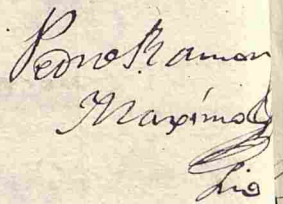 Pedro Ramon
Maximo
Lio